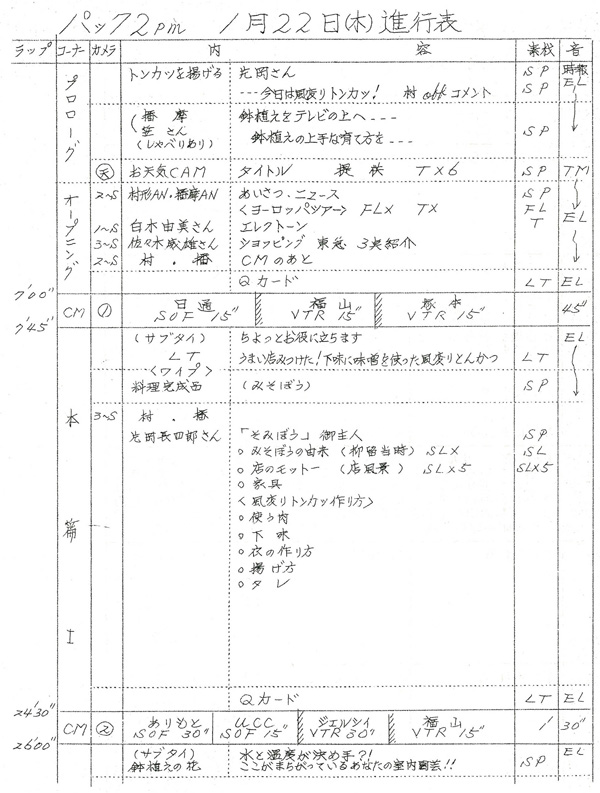 パック2pm 1月22日(木)進行表
ラップ コーナー カメラ 内 容 素材 音
プロローグ トンカツを揚げる 片岡さん SP 時報
----今日は風変りトンカツ! 村offコメント SP EL
播摩 鉢植えをテレビの上へ---
笠さん 鉢植えの上手な育て方を--- SP
(しゃべりあり)
天 お天気CAM タイトル 提供 TX6 SP TM
オープニング 2~S 村形AN・播摩AN あいさつ、ニュース SP
<ヨーロッパツアー> FLX TX FL
1~S 白木由美さん エレクトーン T EL
3~S 佐々木威雄さん ショッピング 東急 3実紹介
2~S 村・播 CMのあと
Qカード LT EL
7'00"
CM ① 日通 福山 塚本 45"
SOF 15" VTR 15" VTR 15"
7'45"
本篇 I (サブタイ) ちょっとお役に立ちます EL
LT うまい店みつけた!下味に味噌を使った風変りとんかつ LT
<ワイプ>
料理完成品 (みそぼう) SP
3~S 村・播
片岡長四郎さん 「そみぼう」御主人 SP
○みそぼうの由来(柳留当時) SLX SL
○店のモットー(店風景) SLX5 SLX5
○家具
<風変りトンカツ作り方>
○使う肉
○下味
○衣の作り方
○揚げ方
○タレ
Qカード LT EL
24'30"
CM ② ありもと UCC ジェルシイ 福山 1' 30"
SOF 30" SOF 15" VTR 30" VTR 15"
26'00"
(サブタイ) 水と温度が決め手?! EL
鉢植えの花 ここがまちがっているあなたの室内園芸!! SP